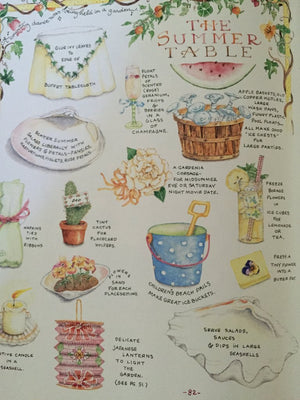 THE
SUMMER
TABLE
GLUE IVY LEAVES
TO
EDGE OF
BUFFET TABLECLOTH
FLOAT
PETALS OF
SCENTED
(ROSE)
GERANIUMS
FRUITS
&
BERRIES
IN A
GLASS
OF
CHAMPAGNE.
APPLE BASKETS, OLD
COPPER KETTLES,
LARGE
WASH PANS,
FUNNY PLASTIC
POOL FLOATS,
ALL MAKE GOOD
ICE CHESTS
FOR
LARGE PARTIES.
SUMMER
LIBERALLY WITH
FLOWERS & PETALS — PANSIES,
ROSE PETALS.
A GARDENIA
CORSAGE —
FOR MIDSUMMER
EVE OR SATURDAY
NIGHT MOVIE DATE.
FREEZE
BORAGE
FLOWERS
IN
ICE CUBES
FOR
LEMONADE
OR
TEA.
NAPKINS
TIED
WITH
RIBBONS
TINY
CACTUS
FOR
PLACECARD
HOLDERS.
FLOWERS
IN
SAND FOR EACH
PLACESETTING
CHILDREN'S BEACH PAILS
MAKE GREAT ICE BUCKETS.
PRESS A
TINY FLOWER
INTO A
BUTTER PAT
CANDLE
IN A
SEASHELL.
DELICATE
JAPANESE
LANTERNS
TO LIGHT
THE
GARDEN.
(SEE PG. 31.)
SERVE SALADS,
SAUCES
& DIPS IN LARGE
SEASHELLS
-82-